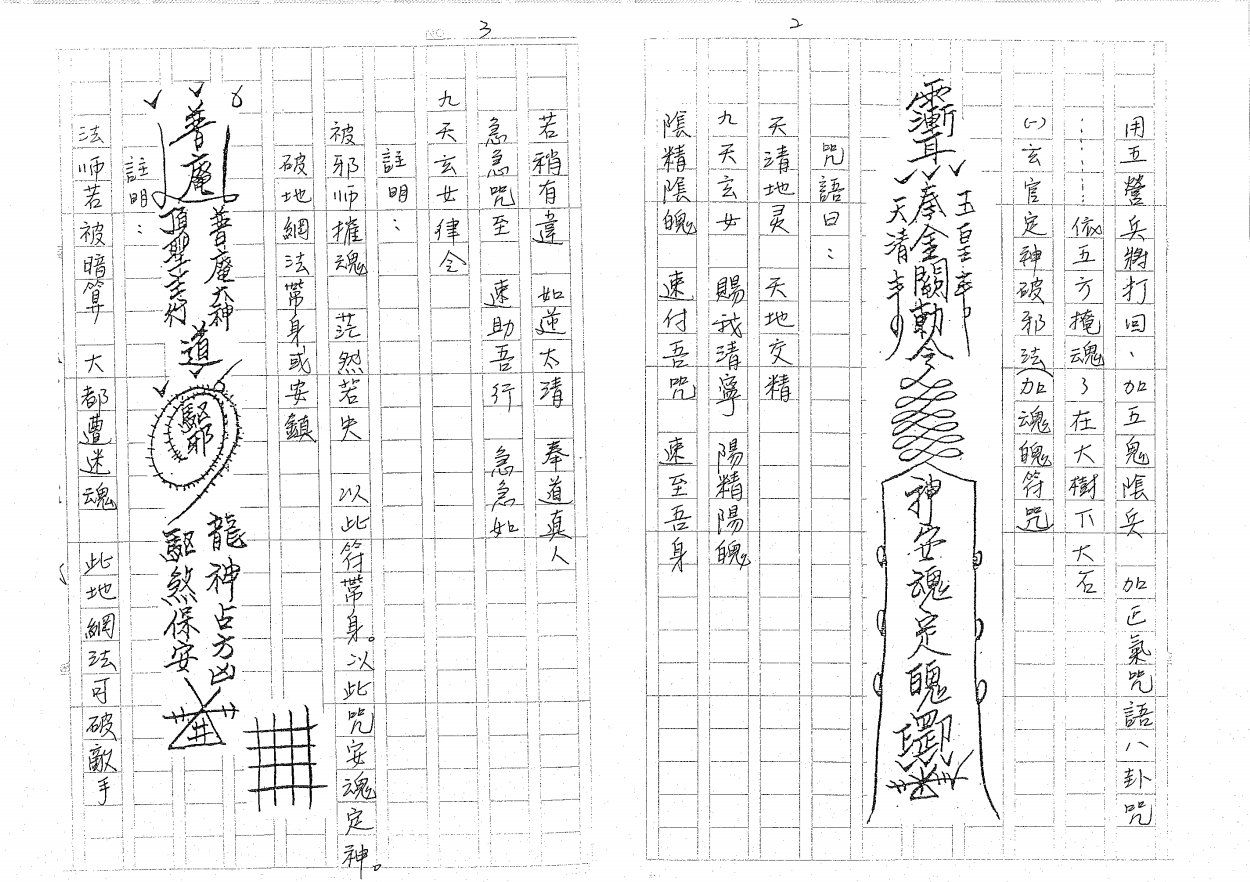 2
用五營兵將打回、加五鬼陰兵 加正氣咒語八卦咒
………依五方掩魂了在大樹下大石
(一)玄官定神破邪法(加魂魄符咒)
玉皇
奉金闕勅令
天清
神安魂定魄
咒語曰:
天清地灵 天地交精
九天玄女 賜我清寧 陽精陽魄
陰精陰魄 速付吾咒 速至吾身
NO. 3
若稍有違 如逆太清 奉道真人
急急咒至 速助吾行 急急如
九天玄女律令
註明:
被邪师摧魂 茫然若失 以此符带身。以此咒安魂定神。
破地網法带身或安鎮
普庵
普庵大神
頂聖
道
驅邪
龍神占方凶
驅煞保安
井
註明:
法师若被暗算 大都遭迷魂 此地網法可破敵手